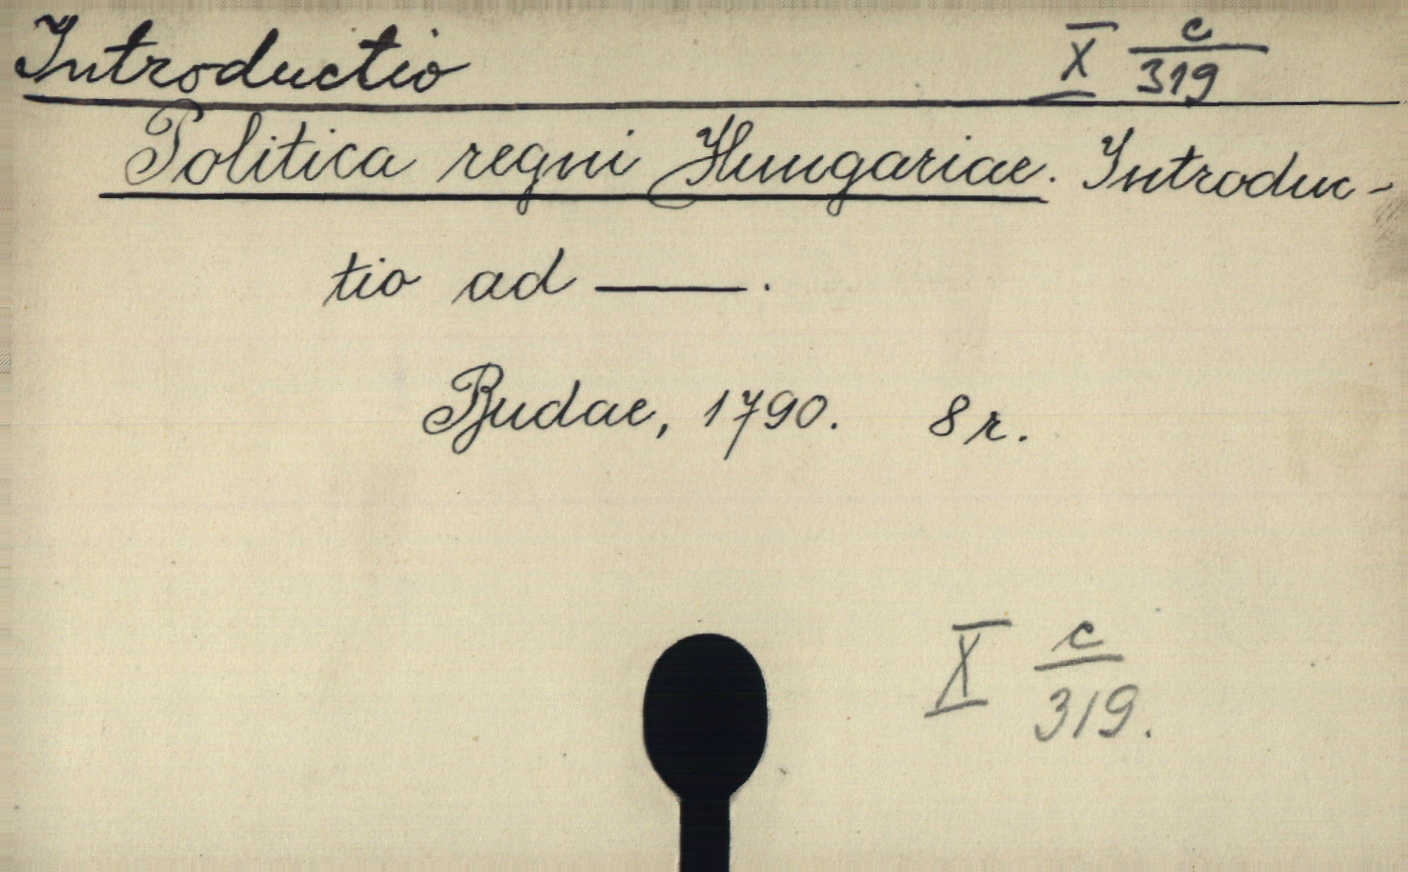 Introductio X c/319
Politica regni Hungariae. Introduc-
tio ad ——.
Budae, 1790. 8 r.
X c/319.